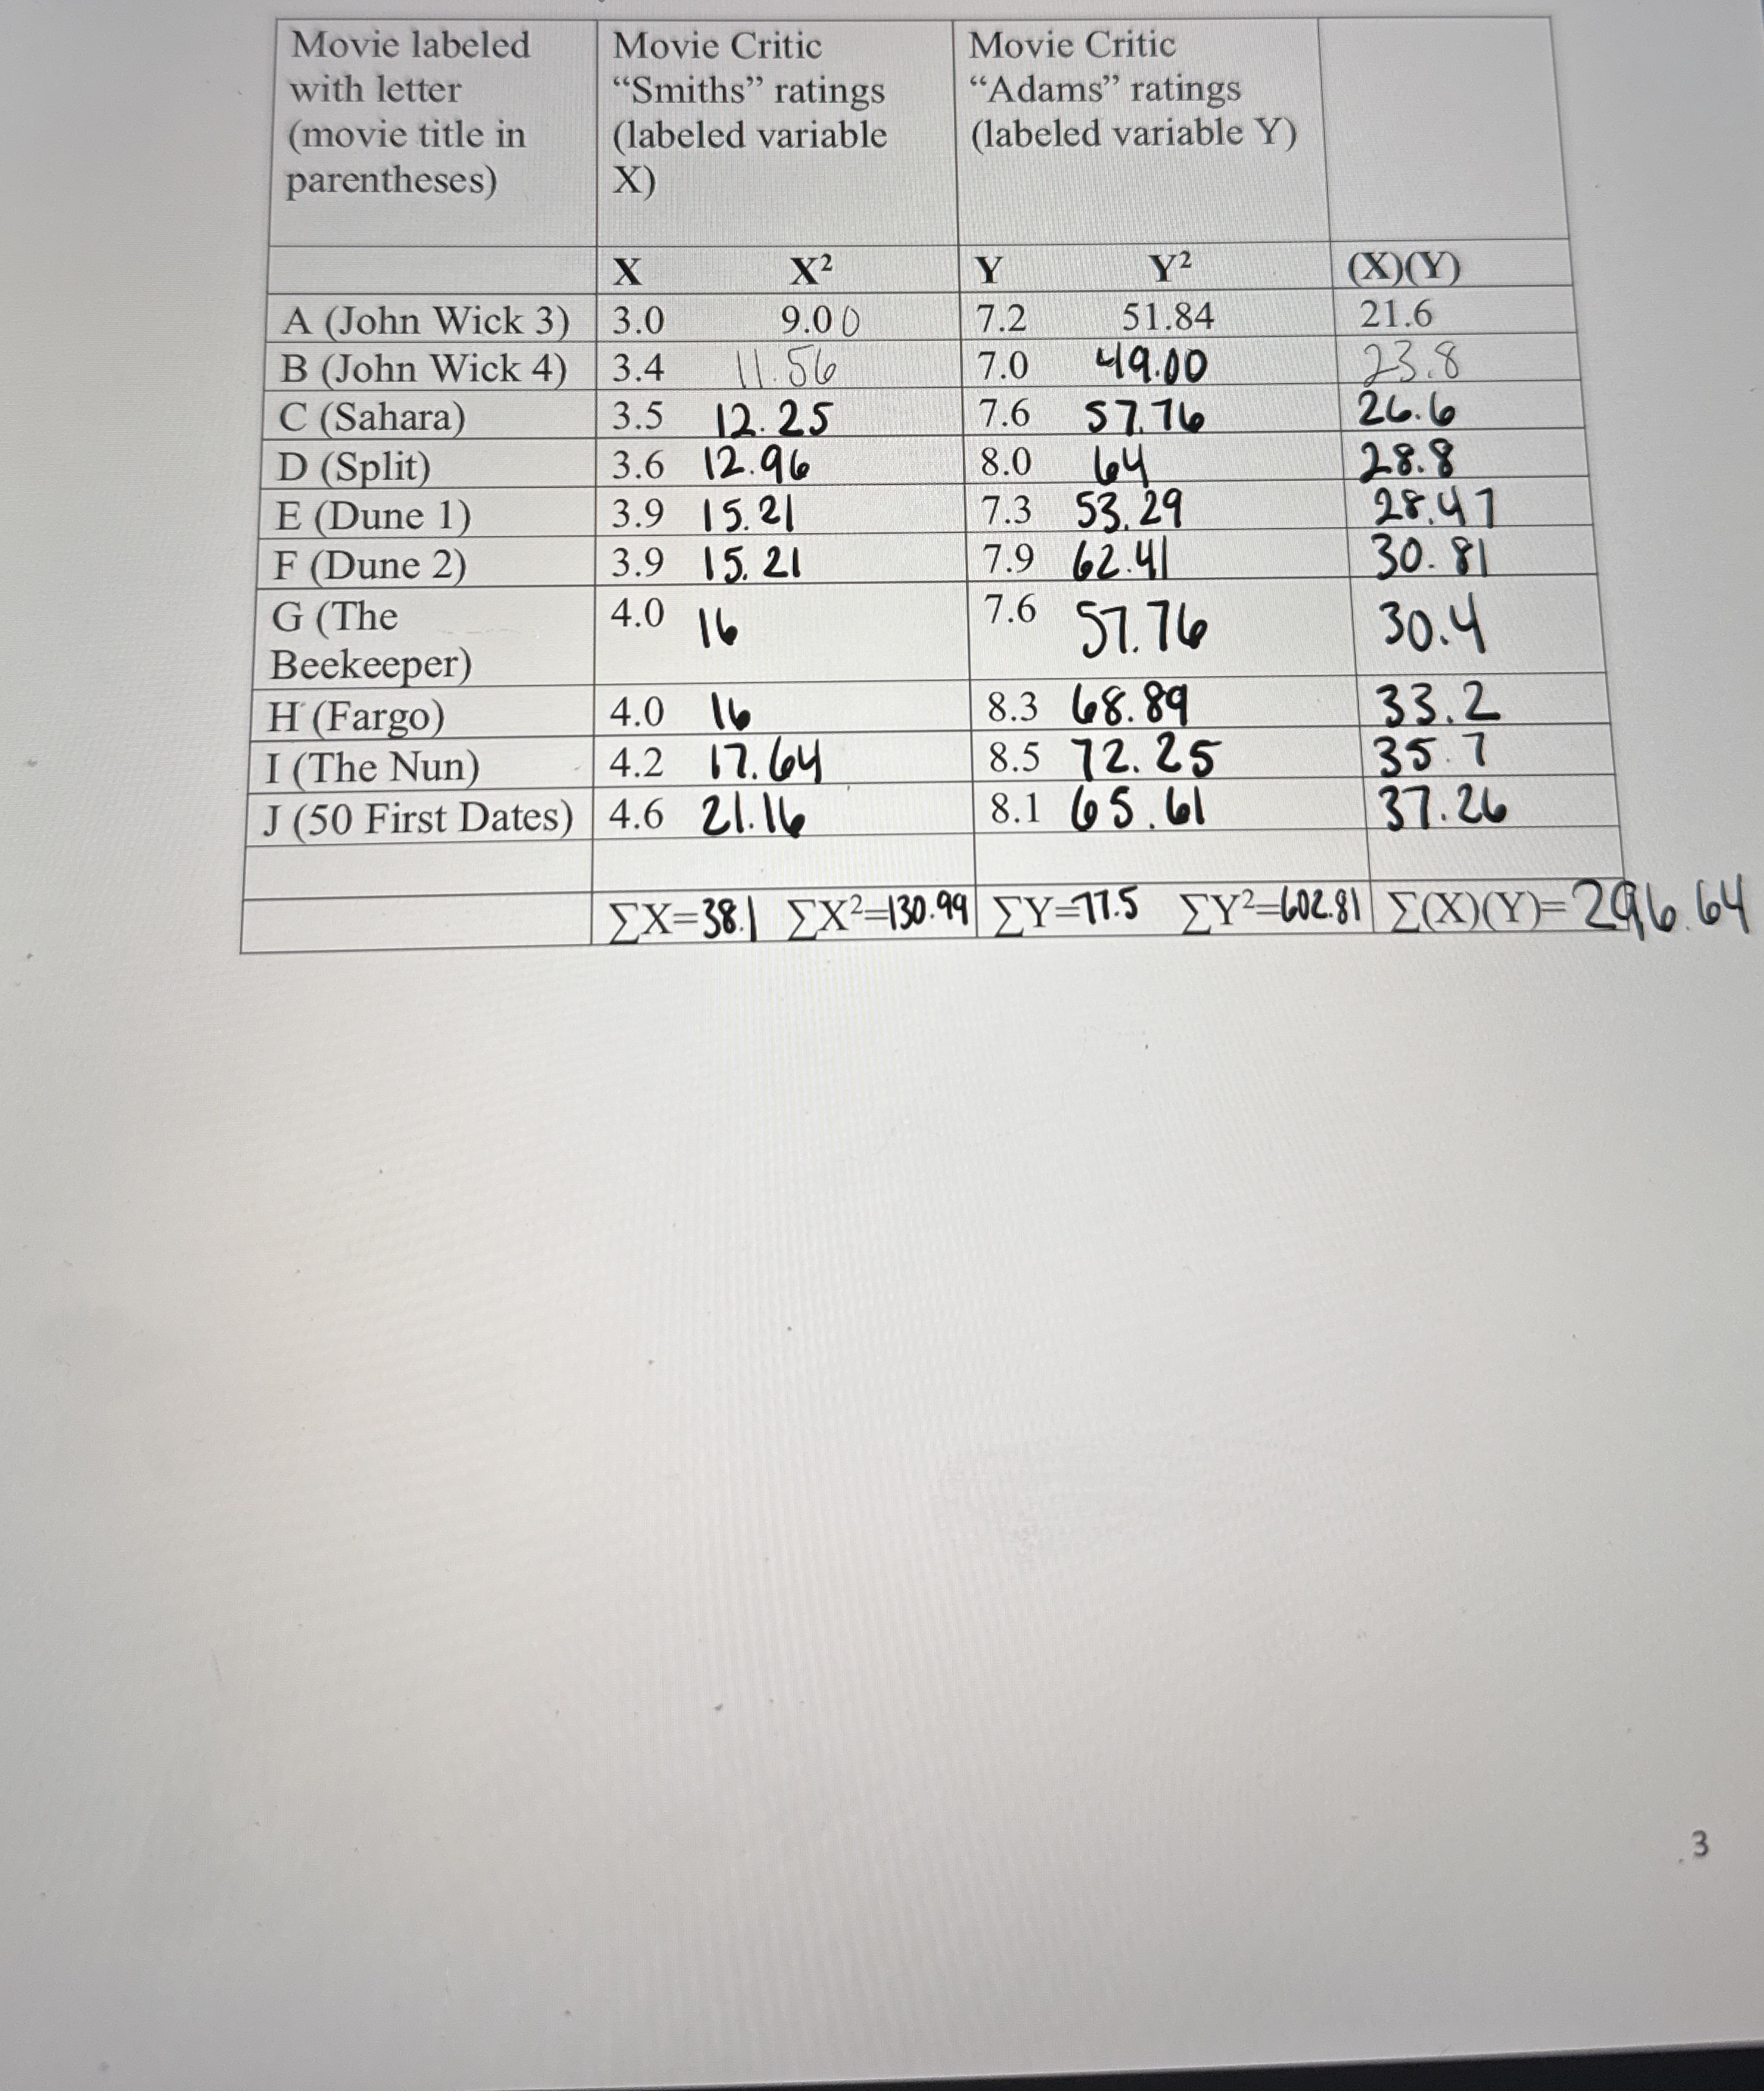 Movie labeled with letter (movie title in parentheses) Movie Critic “Smiths” ratings (labeled variable X) Movie Critic “Adams” ratings (labeled variable Y)
X X² Y Y² (X)(Y)
A (John Wick 3) 3.0 9.00 7.2 51.84 21.6
B (John Wick 4) 3.4 11.56 7.0 49.00 23.8
C (Sahara) 3.5 12.25 7.6 57.76 26.6
D (Split) 3.6 12.96 8.0 64 28.8
E (Dune 1) 3.9 15.21 7.3 53.29 28.47
F (Dune 2) 3.9 15.21 7.9 62.41 30.81
G (The Beekeeper) 4.0 16 7.6 57.76 30.4
H (Fargo) 4.0 16 8.3 68.89 33.2
I (The Nun) 4.2 17.64 8.5 72.25 35.7
J (50 First Dates) 4.6 21.16 8.1 65.61 37.26
∑X=38.1 ∑X²=130.99 ∑Y=77.5 ∑Y²=602.81 ∑(X)(Y)=296.64
3